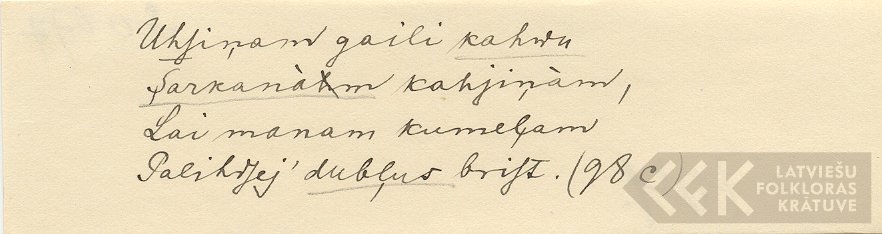 Uhsiņam gaili kahwu
Sarkanàm kahjiņàm,
Lai manam kumeļam
Palihdsej' dubļus brist. (98 c)
LATVIEŠU
FOLKLORAS
KRĀTUVE